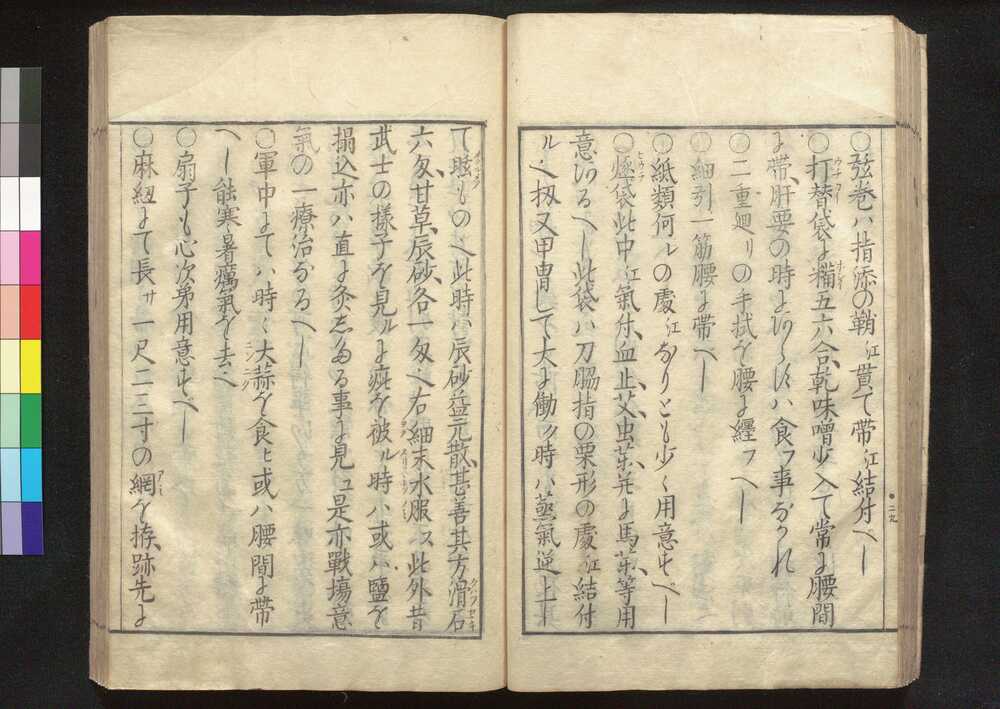 ○弦巻ハ指添の鞘江貫て帯江結付へし
○打替袋に糒五六合乾味噌少入て常に腰間
に帯肝要の時にあらずハ食ふ事なかれ
○二重廻リの手拭を腰に纒フへし
○細引一筋腰に帯へし
○紙類何ルの処江なりとも少く用意すべし
○燧袋此中江氣付血止艾虫薬并に馬薬等用
意あるへし此袋ハ刀脇指の栗形の處江結付
ル也扨又甲冑して大に働ク時ハ蒸氣逆上
て眩もの也此時ハ辰砂益元散甚善其方滑石
六匁甘草辰砂各一匁也右細末水服ス此外昔
武士の様子を見ルに疵を被ル時ハ或ハ鹽を
搨込亦ハ直に灸したる事に見ユ是亦戰場意
氣の一療治なるへし
○軍中にてハ時々大蒜を食ヒ或ハ腰間に帯
へし能寒暑癘氣を去也
○扇子も心次第用意すへし
○麻紐にて長サ一尺二三寸の網を拵跡先に
二九